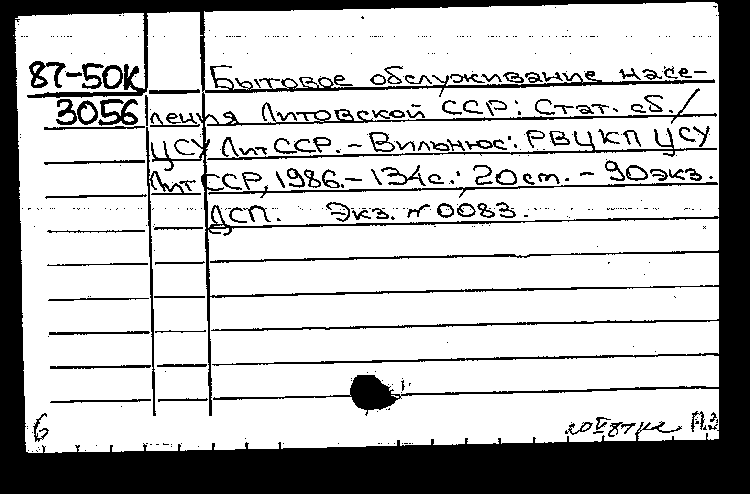 87-50К Бытовое обслуживание насе-
3056 ления Литовской ССР: Стат. сб./
ЦСУ ЛитССР. - Вильнюс: РВЦКП ЦСУ
Лит ССР, 1986. - 134с.; 20 см. - 90 экз.
ДСП. Экз. № 0083.
6